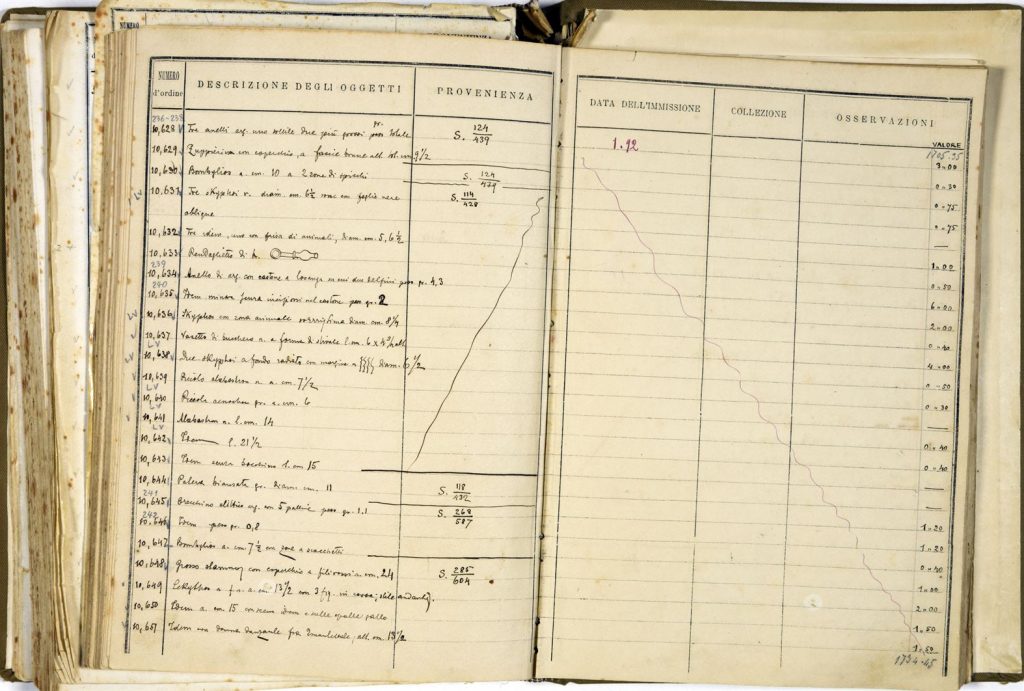 NUMERO d'ordine DESCRIZIONE DEGLI OGGETTI PROVENIENZA DATA DELL'IMMISSIONE COLLEZIONE OSSERVAZIONI
VALORE
1.92 1705.95
236-238
10,628 Tre anelli arg. uno sottile due più grossi peso totale S. 124/439 3=00
10,629 Zupperina con coperchio, a fascie brune alt. cm 9 1/2 0=30
10,630 Bombylios a. cm. 10 a 2 zone di S. 124/439 0=75
10,631 Tre skyphoi v. diam. cm. 6 1/2 con foglie nere S. 114/428 0=75
oblique
10,632 Tre idem, uno con fascia di animali, diam. cm. 5, 6 1/2 1=00
10,633 di b. 0=50
239
10,634 Anello di arg. con castone a losanga in cui due delfini peso gr. 4,3 6=00
240
10,635 Idem minore senza incisioni nel castone peso gr. 2 2=00
LV
10,636 Skyphos con zona animali diam. cm 8 1/2 0=40
10,637 Vasetto di bucchero a forma di stivale l. cm 6 x 4 1/2 alt. 4=00
LV
10,638 Due skyphoi a fondo radiato con margine a diam. 6 1/2 0=50
10,639 Piccolo alabastron a. cm. 7 1/2 0=30
LV
10,640 Piccola a. cm. 6
LV
10,641 Alabastron a. l. cm. 14 0=40
LV
10,642 Idem l. 21 1/2 0=40
10,643 Idem senza bocchino l. cm 15
10,644 Patera biansata gr. diam. cm. 11 S. 118/432
241
10,645 Orecchino elittico arg. con 5 palline peso gr. 1.1 S. 268/587 1=20
242
10,646 Idem peso gr. 0,8 1=20
10,647 Bombylios a. cm. 7 1/2 con zone a scacchetti 0=40
10,648 Grosso stamnos con coperchio a fili rossi a. cm. 24 S. 285/604 1=00
10,649 Lekythos a f. n. a. cm 13 1/2 con 3 fig. in corsa; stile andante. 2=00
10,650 Idem a. cm. 15 con scena idem e sulle spalle gallo 1=50
10,651 Idem con donna danzante fra 2 mantellate, alt. cm. 13 1/2 1=50
1734.45